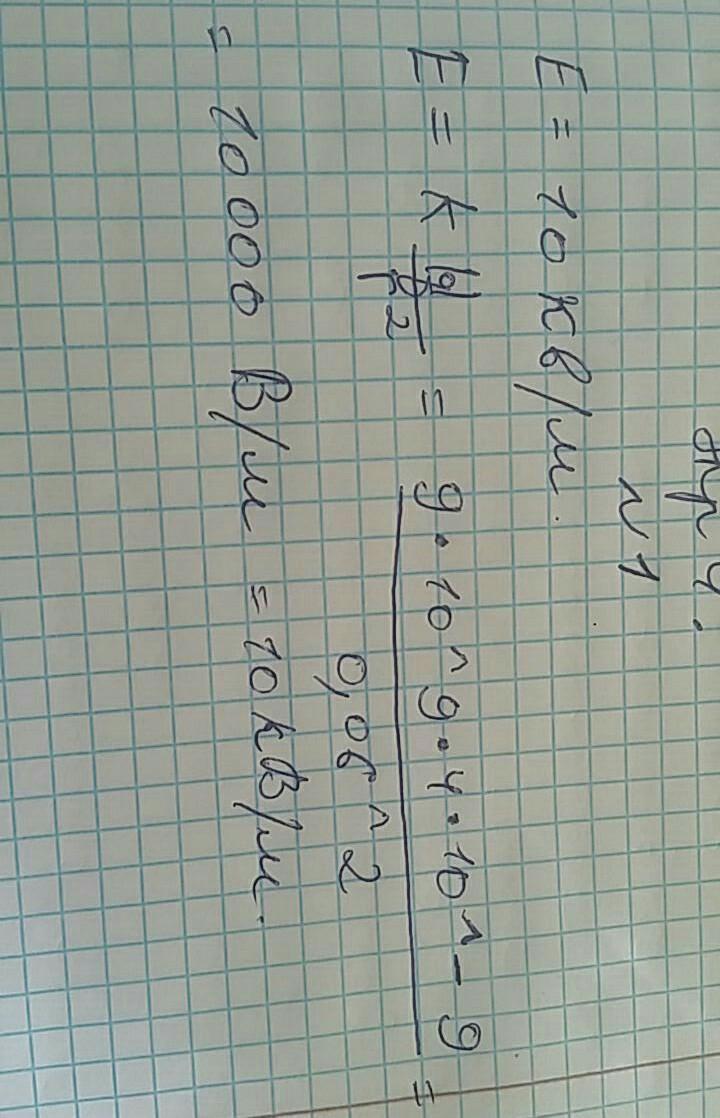 пр 4.
N1
E = 10 кВ/м.
E = k |q|/r2 = 9 · 10 ^ 9 · 4 · 10 ^ - 9 / 0,06 ^ 2 =
= 10 000 В/м = 10 кВ/м.